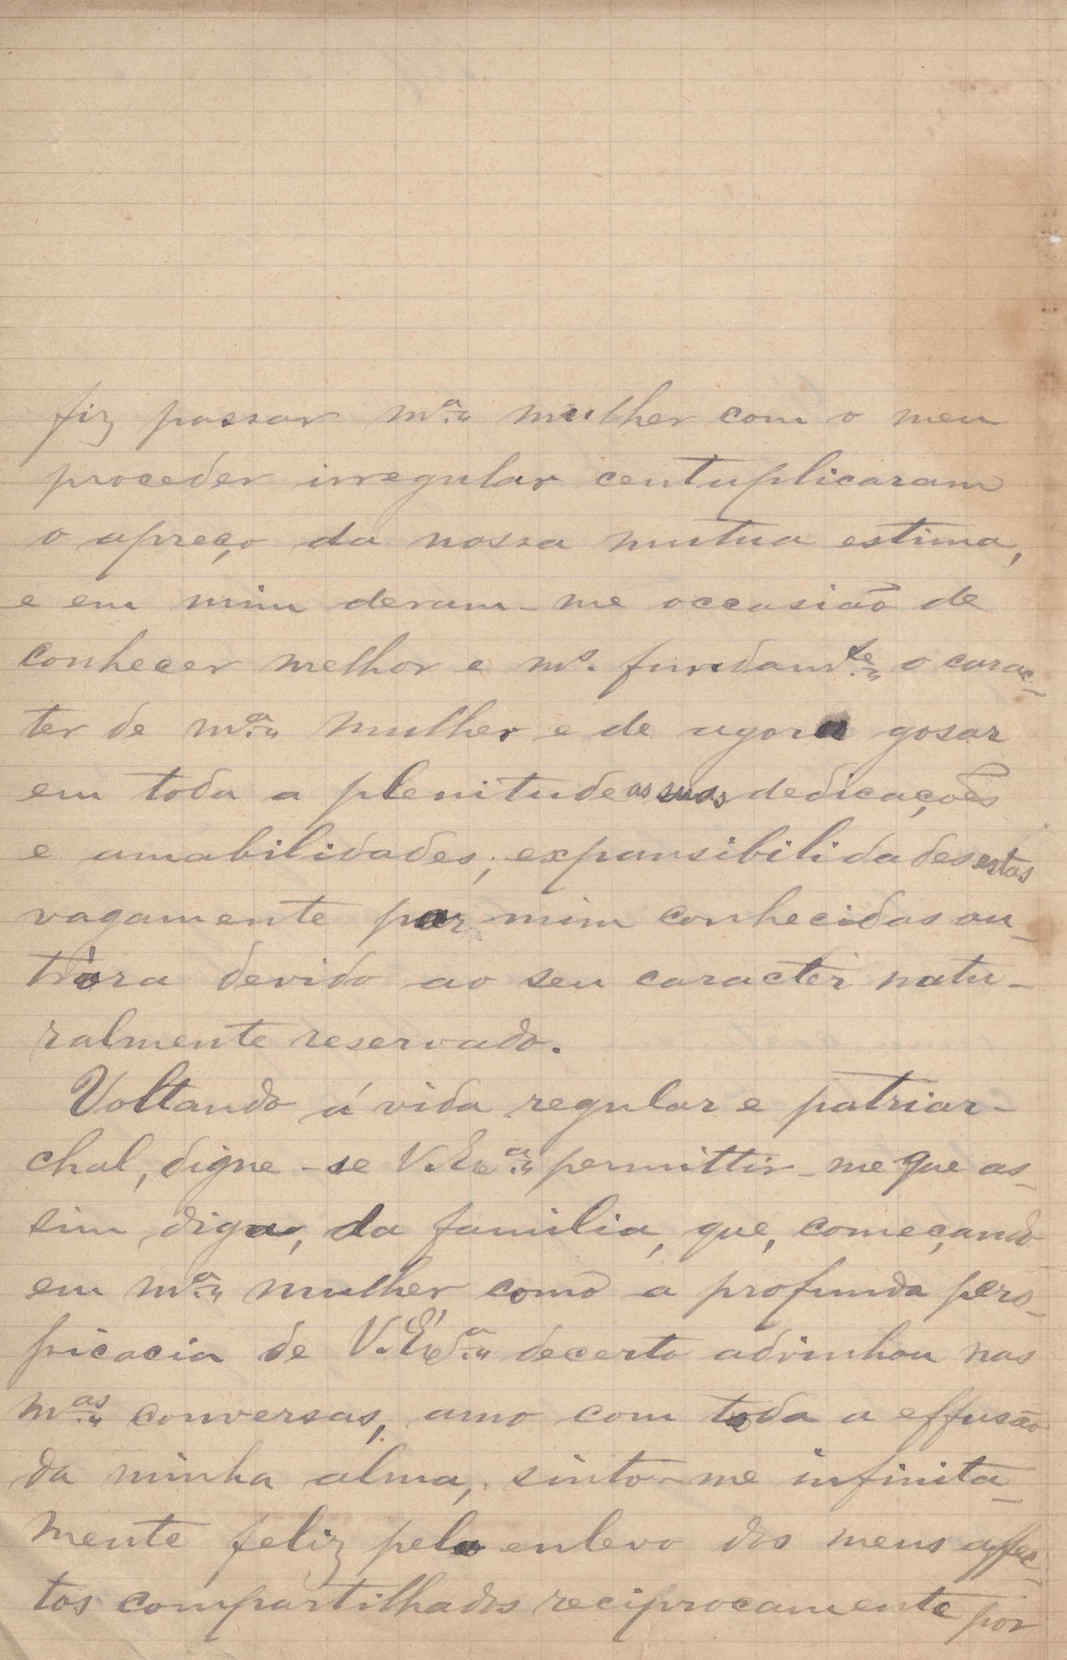 fiz passar m.ª mulher com o meu
proceder irregular centuplicaram
o apreço da nossa mutua estima,
e em mim deram-me occasião de
conhecer melhor e m.s fundam.te o carac-
ter de m.ª mulher e de agora gosar
em toda a plenitude as suas dedicações
e amabilidades, expansibilidades estas
vagamente por mim conhecidas ou-
trora devido ao seu caracter natu-
ralmente reservado.
Voltando á vida regular e patriar-
chal, digne-se V. Ex.ª permittir-me que as-
sim diga, da familia, que, começando
em m.ª mulher, como a profunda pers-
picacia de V. Ex.ª decerto adivinhou nas
m.as conversas, amo com toda a effusão
da minha alma, sinto-me infinita-
mente feliz pelo enlevo dos meus affec-
tos compartilhados reciprocamente por